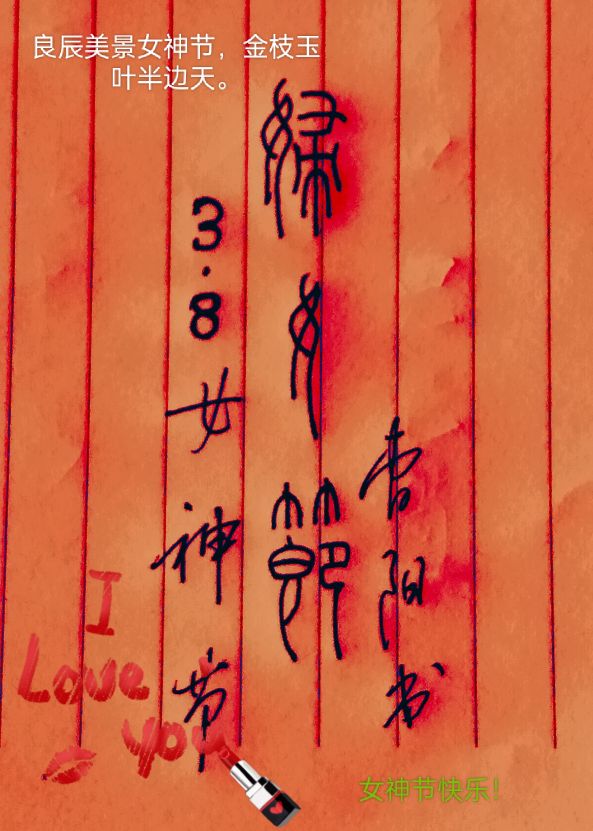 良辰美景女神节，金枝玉
叶半边天。
婦女節
3.8女神节
阳书
I
Love
you
女神节快乐！